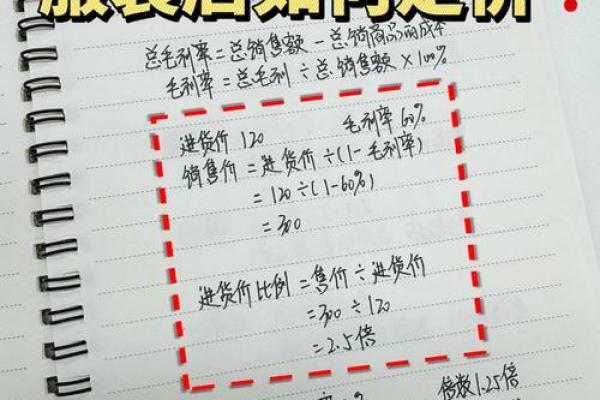 服装店如何定价?
总毛利率=总销售额-总销商品的成本
毛利率=总毛利÷总销售额×100%
进货价 120 毛利率 60%
销售价=进货价÷(1-毛利率)
=120÷(1-60%)
=300
进货价比例=售价÷进货价
=300÷120
=2.5倍
倍数1.25倍